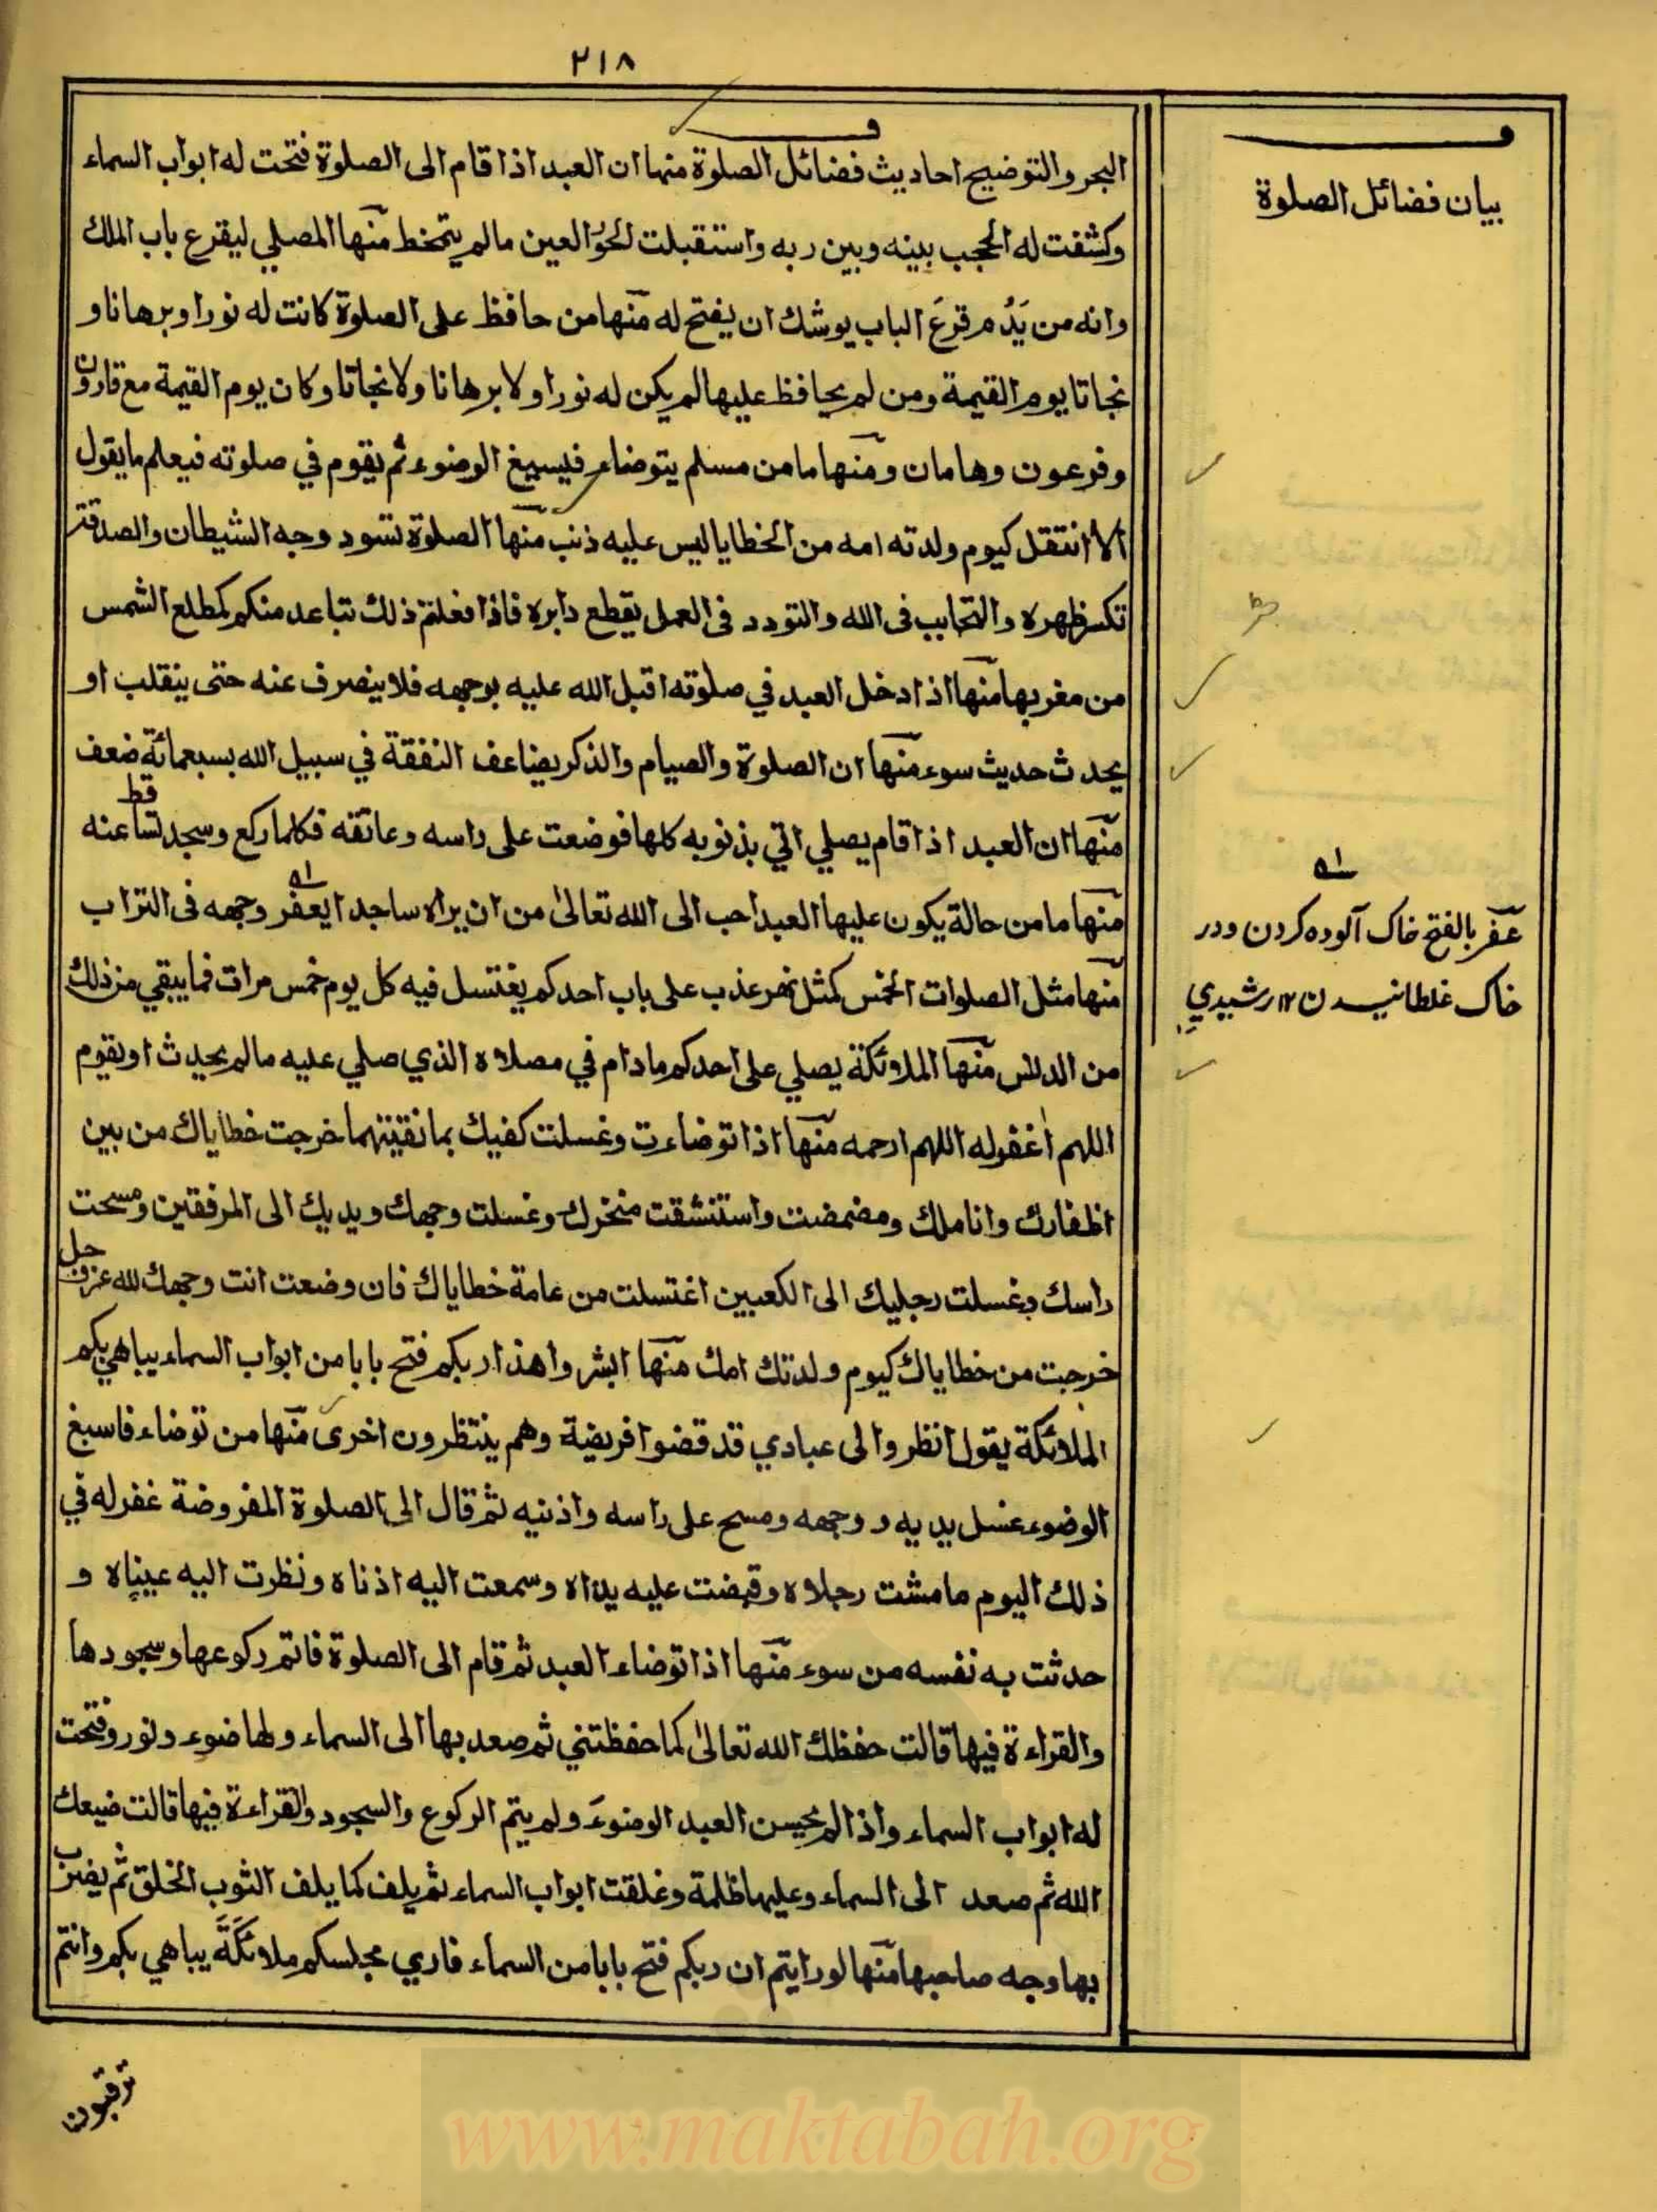 ٢١٨
البحر والتوضيح احاديث فضائل الصلوة منها ان العبد اذا قام الى الصلوة فتحت له ابواب السماء
وكشفت له الحجب بينه وبين ربه واستقبلت الحور العين مالم يتمخط منها المصلي ليقرع باب الملك
وانه من يدم قرع الباب يوشك ان يفتح له منها من حافظ على الصلوة كانت له نورا وبرهانا و
نجاتا يوم القيمة ومن لم يحافظ عليها لم يكن له نورا ولا برهانا ولا نجاتا وكان يوم القيمة مع قارون
وفرعون وهامان ومنها مامن مسلم يتوضاء فيسبغ الوضوء ثم يقوم في صلوته فيعلم مايقول
الا انتقل كيوم ولدته امه من الخطايا ليس عليه ذنب منها الصلوة تسود وجه الشيطان والصدقة
تكسر ظهره والتحابب فى الله والتودد فى العمل يقطع دابره فاذا فعلتم ذلك تباعد منكم كمطلع الشمس
من مغربها منها اذا دخل العبد في صلوته اقبل الله عليه بوجهه فلا ينصرف عنه حتى ينقلب او
يحدث حديث سوء منها ان الصلوة والصيام والذكر يضاعف النفقة في سبيل الله بسبعمائة ضعف
منها ان العبد اذا قام يصلي اتي بذنوبه كلها فوضعت على راسه وعاتقه فكلما ركع وسجد تساقط عنه
منها ما من حالة يكون عليها العبد احب الى الله تعالى من ان يراه ساجدا يعفر وجهه فى التراب
منها مثل الصلوات الخمس كمثل نهر عذب على باب احدكم يغتسل فيه كل يوم خمس مرات فما يبقي من ذلك
من الدنس منها الملائكة يصلي على احدكم مادام في مصلاه الذي صلي عليه مالم يحدث او يقوم
اللهم اغفرله اللهم ارحمه منها اذا توضاءت وغسلت كفيك بما نقيتهما خرجت خطاياك من بين
اظفارك واناملك ومضمضت واستنشقت منخرك وغسلت وجهك ويديك الى المرفقين ومسحت
راسك وغسلت رجليك الى الكعبين اغتسلت من عامة خطاياك فان وضعت انت وجهك لله عزوجل
خرجت من خطاياك كيوم ولدتك امك منها ابشروا هذا ربكم فتح بابا من ابواب السماء يباهي بكم
الملائكة يقول انظروا الى عبادي قد قضوا فريضة وهم ينتظرون اخرى منها من توضاء فاسبغ
الوضوء غسل يديه ووجهه ومسح على راسه واذنيه ثم قال الى الصلوة المفروضة غفرله في
ذلك اليوم مامشت رجلاه وقبضت عليه يداه وسمعت اليه اذناه ونظرت اليه عيناه و
حدثت به نفسه من سوء منها اذا توضاء العبد ثم قام الى الصلوة فاتم ركوعها وسجودها
والقراءة فيها قالت حفظك الله تعالى كما حفظتني ثم صعد بها الى السماء ولها ضوء ونور وفتحت
له ابواب السماء واذا لم يحسن العبد الوضوء ولم يتم الركوع والسجود والقراءة فيها قالت ضيعك
الله ثم صعد الى السماء وعليها ظلمة وغلقت ابواب السماء ثم يلف كما يلف الثوب الخلق ثم يضرب
بها وجه صاحبها منها لو رايتم ان ربكم فتح بابا من السماء فاري مجلسكم ملائكة يباهي بكم وانتم
ترقبون
بيان فضائل الصلوة
عفر بالفتح خاك آلوده كردن ودر
خاك غلطانيدن ١٢ رشيدي
www.maktabah.org